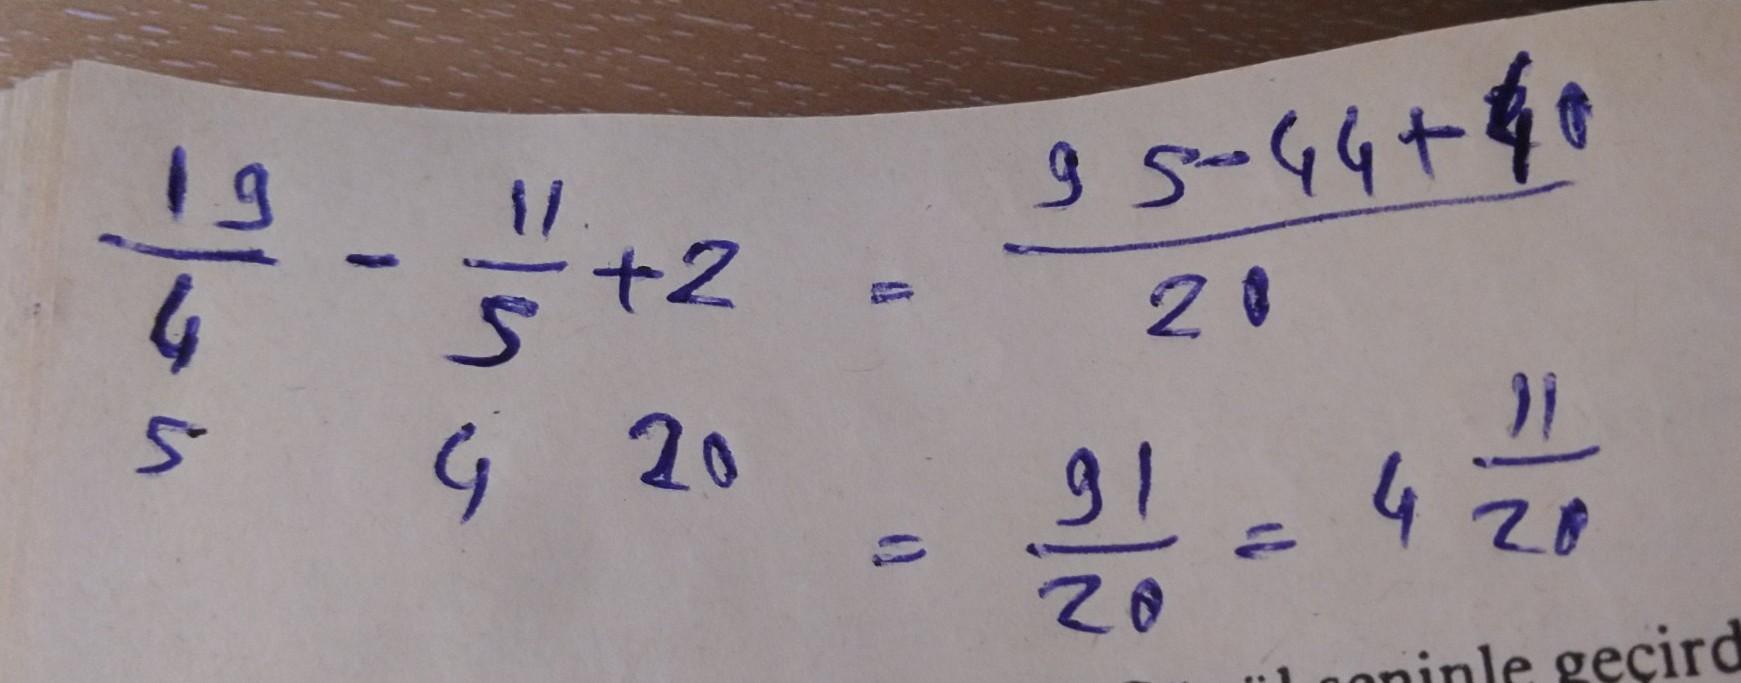 19/4 - 11/5 + 2 = (95-44+40)/20
5 4 20
= 91/20 = 4 11/20
seninle geçird